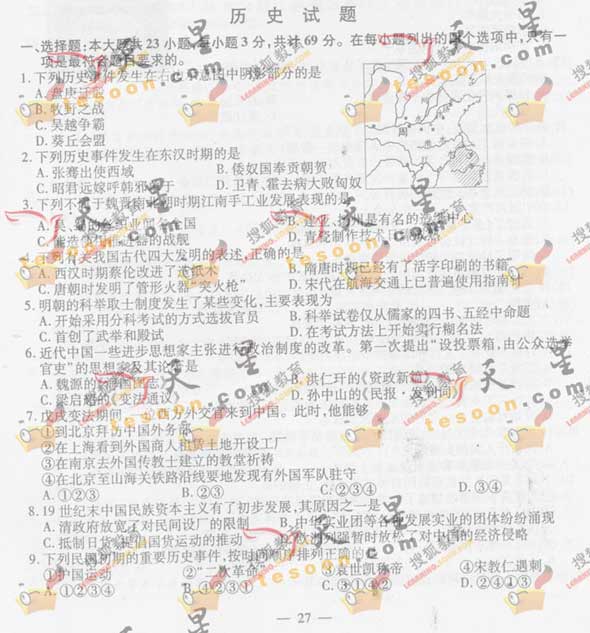 历史试题
一、选择题:本大题共23小题,每小题3分,共计69分。在每小题列出的四个选项中,只有一
项是最符合题目要求的。
1.下列历史事件发生在右边示意图中阴影部分的是
A.盘庚迁殷
B.牧野之战
C.吴越争霸
D.葵丘会盟
2.下列历史事件发生在东汉时期的是
A.张骞出使西域 B.倭奴国奉贡朝贺
C.昭君远嫁呼韩邪单于 D.卫青、霍去病大败匈奴
3.下列不属于魏晋南北朝时期江南手工业发展表现的是
A.吴、蜀的 业 全国 B.建业、 州是有名的造纸中心
C. 造 的战舰 D.青瓷制作技术
4.下列有关我国古代四大发明的表述,正确的是
A.西汉时期蔡伦改进了造纸术 B.隋唐时期已经有了活字印刷的书籍
C.唐朝时发明了管形火器“突火枪” D.宋代在航海交通上已普遍使用指南针
5.明朝的科举取士制度发生了某些变化,主要表现为
A.开始采用分科考试的方式选拔官员 B.科举试卷仅从儒家的四书、五经中命题
C.首创了武举和殿试 D.在考试方法上开始实行糊名法
6.近代中国一些进步思想家主张进行政治制度的改革。第一次提出“设投票箱,由公众选举
官吏”的思想家及其论著是
A.魏源的《海国图志》 B.洪仁玕的《资政新篇》
C.梁启超的《变法通议》 D.孙中山的《民报·发刊词》
7.戊戌变法期间,一位西方外交官来到中国。此时,他能够
①到北京拜访中国外务部
②在上海看到外国商人租赁土地开设工厂
③在南京去外国传教士建立的教堂祈祷
④在北京至山海关铁路沿线要地发现有外国军队驻守
A.①②③ B.②③ C.②③④ D.③④
8.19世纪末中国民族资本主义有了初步发展,其原因之一是
A.清政府放宽了对民间设厂的限制 B.中华实业团等各种发展实业的团体纷纷涌现
C.抵制日货、提倡国货运动的推动 D.欧洲列强暂时放松了对中国的经济侵略
9.下列民国初期的重要历史事件,按时间顺序排列正确的是
①护国运动 ②“二次革命” ③袁世凯称帝 ④宋教仁遇刺
A.①②③④ B.④②③① C.③①④② D.②④①③
— 27 —
天星
tesoon.com
搜狐教育
LEARNING.SOHU.COM